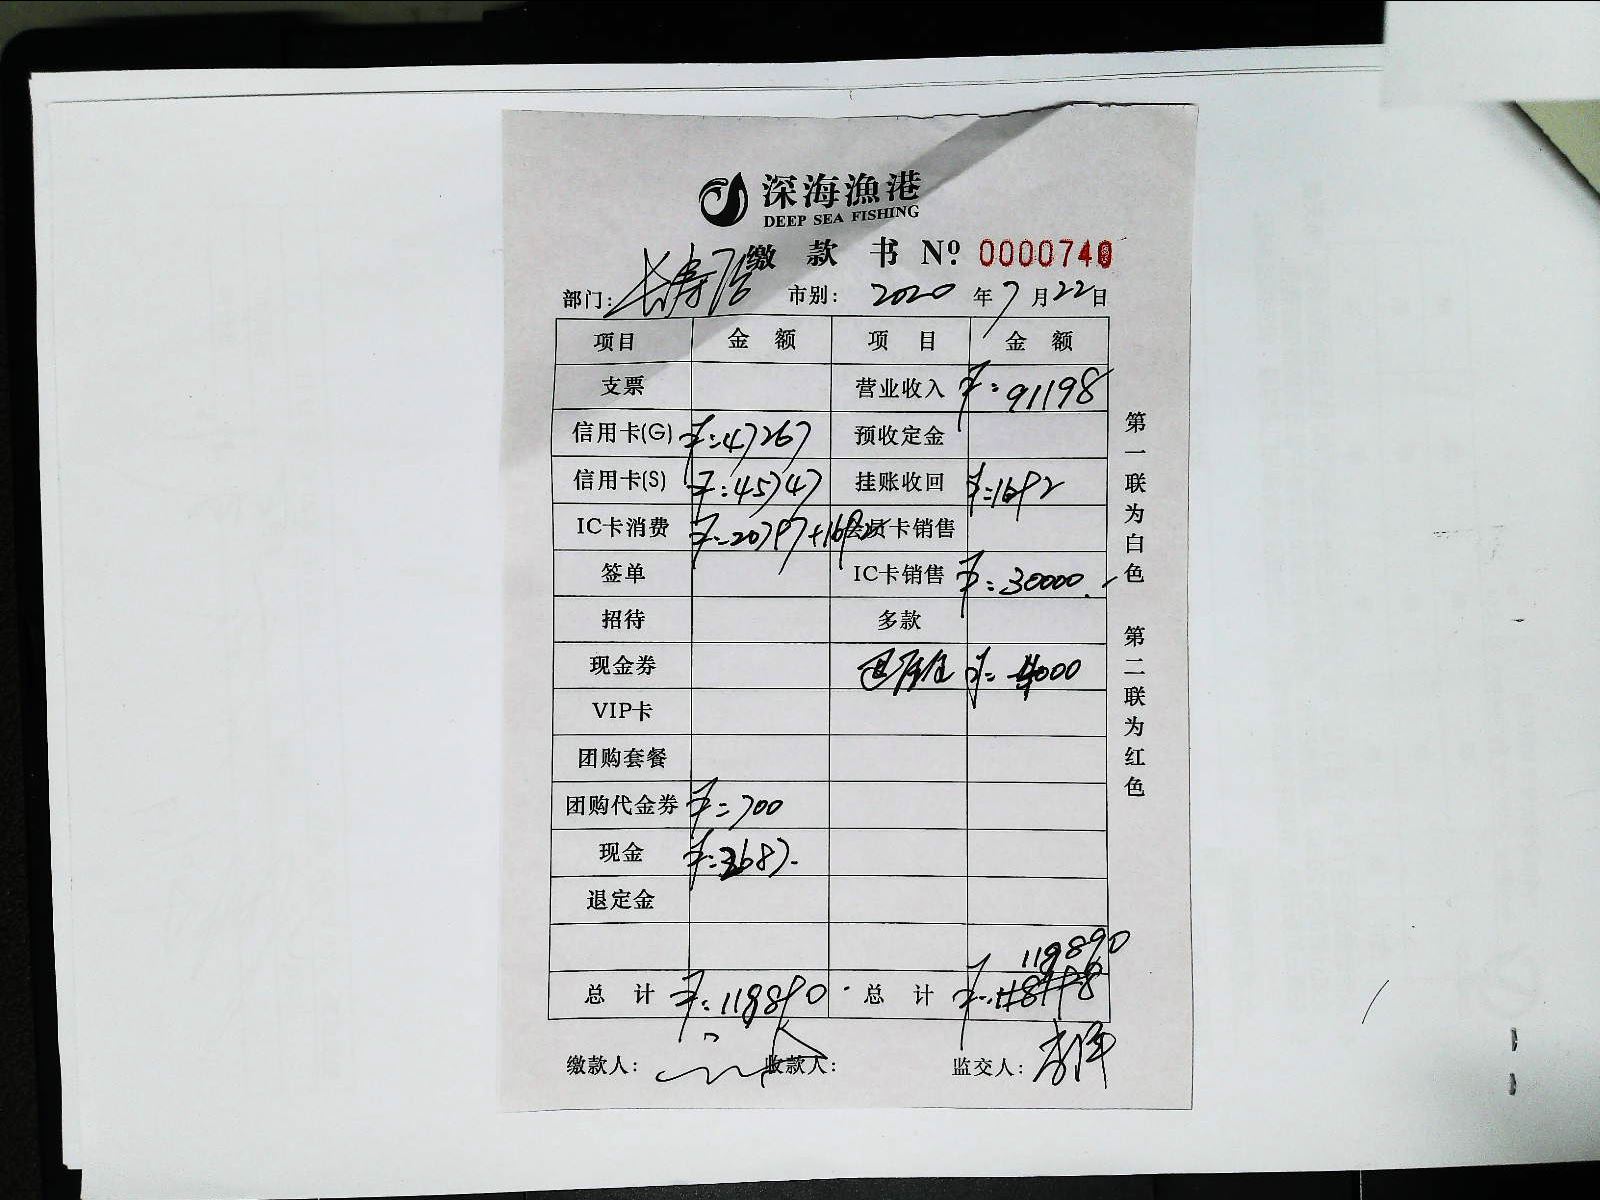 深海漁港
DEEP SEA FISHING
缴款书 Nº 0000740
部门: 长寿店 市别: 2020年7月22日
项目 金额 项目 金额
支票 营业收入 ¥:91198
信用卡(G) ¥:47267 预收定金
信用卡(S) ¥:45747 挂账收回 ¥:1692
IC卡消费 ¥:20797+1692 会员卡销售
签单 IC卡销售 ¥:30000.-
招待 多款
现金券 ¥:-4000
VIP卡
团购套餐
团购代金券 ¥:700
现金 ¥:3687.-
退定金
119890
总计 ¥:119890. 总计
缴款人: 收款人: 监交人:
第一联为白色 第二联为红色